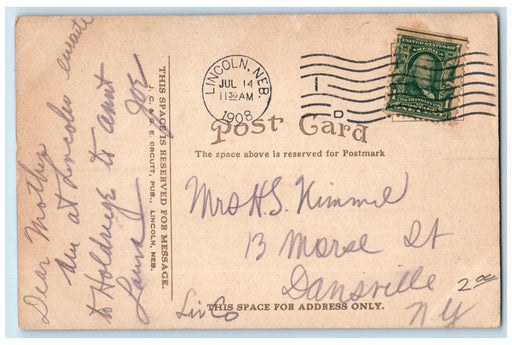 LINCOLN, NEB.
JUL 14
11 30 AM
1908
1
D
UNITED STATES OF AMERICA
Post Card
The space above is reserved for Postmark
Dear Mother
Am at Lincoln enroute
to Holdrege to aunt
Laura
Joe
THIS SPACE IS RESERVED FOR MESSAGE.
ORCUTT, PUB., LINCOLN, NEB.
Mrs H.S. Kimmel
13 Morse St
Dansville
Liv Co
N.Y.
THIS SPACE FOR ADDRESS ONLY.
2 00